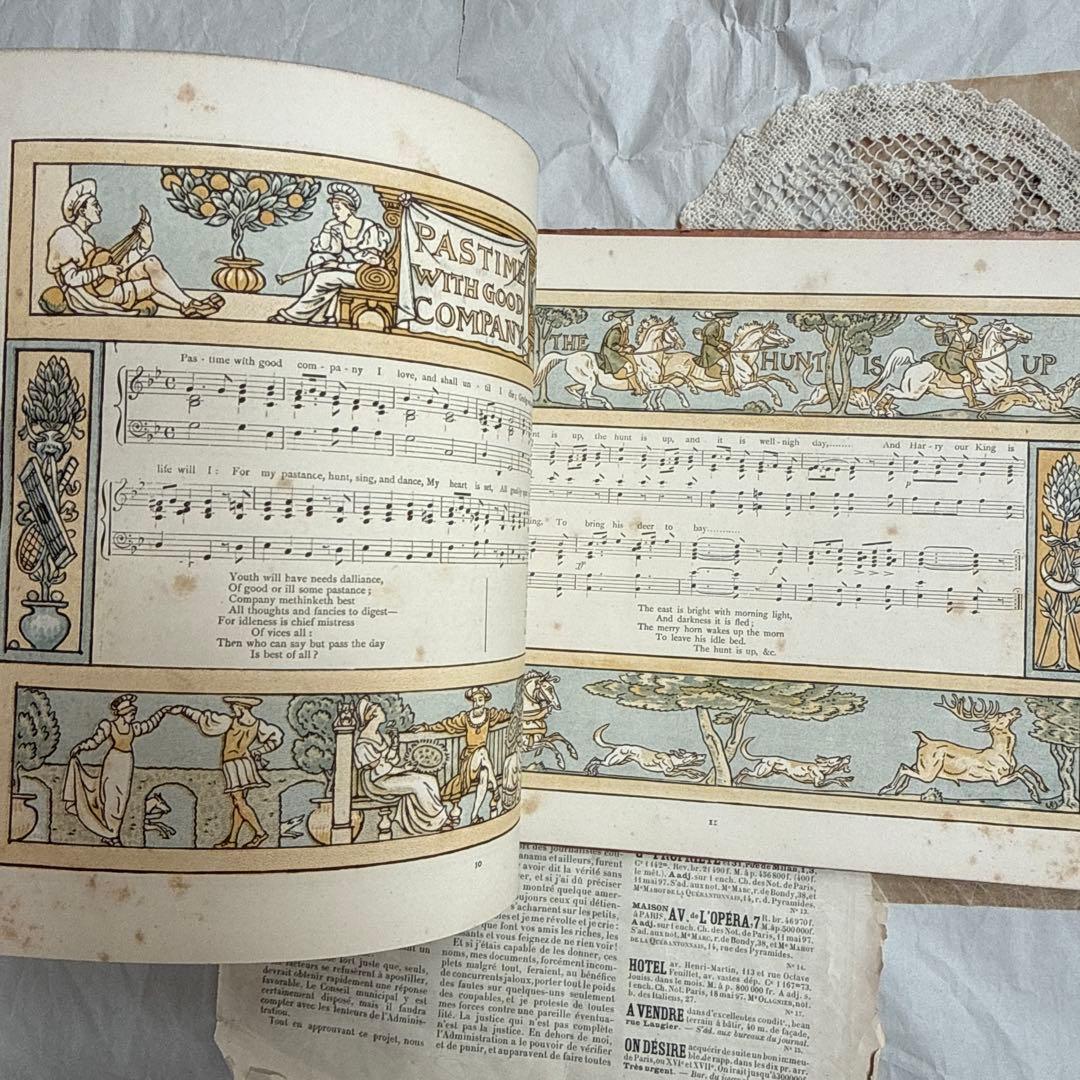 PASTIME
WITH GOOD
COMPANY
Pas - time with good com - pa - ny I love, and shall un - til I die;
life will I: For my pastance, hunt, sing, and dance, My heart is set, All
Youth will have needs dalliance,
Of good or ill some pastance;
Company methinketh best
All thoughts and fancies to digest—
For idleness is chief mistress
Of vices all:
Then who can say but pass the day
Is best of all?
10
THE HUNT IS UP
is up, the hunt is up, and it is well-nigh day,....... And Har - ry our King is
To bring his deer to bay...........
The east is bright with morning light,
And darkness it is fled;
The merry horn wakes up the morn
To leave his idle bed.
The hunt is up, &c.
11
anama et ailleurs, furent
avoir dit la vérité sans
er, et si j'ai dû préciser
montré quelque amer-
oujours ceux qui détien-
s'acharnent sur les petits,
es et je me révolte et je crie:
que font vos amis les riches, les
ants et vous feignez de ne rien voir!
Et si j'étais capable de les donner, ces
noms, mes documents, forcément incom-
plets malgré tout, feraient, au bénéfice
de concurrents jaloux, porter tout le poids
des fautes sur quelques-uns seulement
des coupables, et je proteste de toutes
mes forces contre une pareille éventua-
lité. La justice qui n'est pas complète
n'est pas la justice. En dehors de moi,
l'Administration a le pouvoir de vérifier
et de punir, et auparavent de faire toutes
fort juste que, seuls,
facteurs se refusèrent à apostiller,
devrait obtenir rapidement une réponse
favorable. Le Conseil municipal y est
certainement disposé, mais il faudra
compter avec les lenteurs de l'Adminis-
tration.
Tout en approuvant ce projet, nous
PROPRIÉTÉ et 31, rue de Milan, 1, 3.
le mèt.). A adj. sur 1 ench. Ch. des Not. de Paris,
11 mai 97. S'ad. aux not. Mes MARC, r. de Bondy, 38, et
MABOT DE LA QUÉRANTONNAIS, 14, r. d. Pyramides.
N° 13.
MAISON à PARIS, AV. de L'OPÉRA, 7 R. br. 46970f.
M. à p. 500000f.
A adj. sur 1 ench. Ch. des Not. de Paris, 11 mai 97.
S'ad. aux not. Mes MARC, r. de Bondy, 38, et Me MABOT
DE LA QUÉRANTONNAIS, 14, rue des Pyramides.
N° 14.
HOTEL av. Henri-Martin, 113 et rue Octave
Feuillet, av. vastes dép. Ce 1167m73.
Jouis. dans le mois. M. à p. 800 000 fr. A adj. s.
1 ench. Ch. Not. Paris, 18 mai 97, Me OLAGNIER, not.
b. des Italiens, 27.
N° 17.
A VENDRE dans d'excellentes condit., beau
terrain à bâtir, 40 m. de façade,
rue Laugier. — S'ad. aux bureaux du journal.
N° 15.
ON DÉSIRE acquérir de suite un bon immeu-
ble de rapp. dans les dix pr. arr.
de Paris, ou XVIe et XVIIe. On irait jusqu'à
Très urgent. — Bur. du